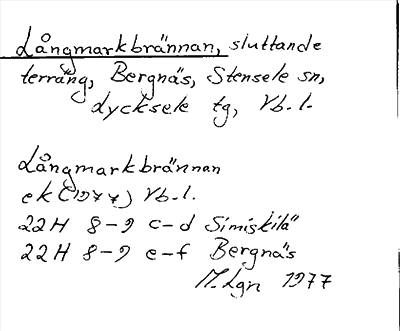 Långmarkbrännan, sluttande
terräng, Bergnäs, Stensele sn,
Lycksele tg, Vb. l.
Långmarkbrännan
ek (1977) Vb. l.
22H 8-9 c-d Simiskilä
22H 8-9 e-f Bergnäs
M. Lgn 1977